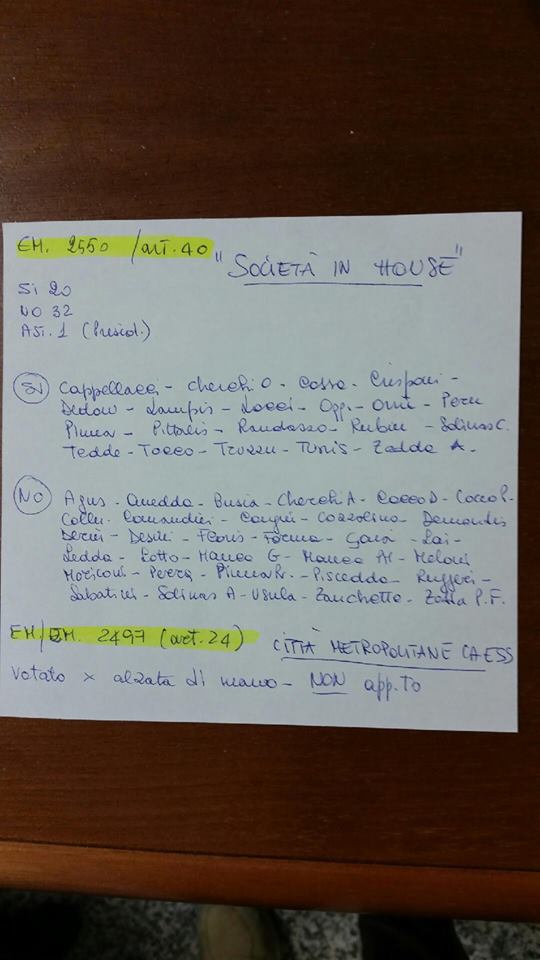 EM. 2550 /art. 40
"SOCIETÀ IN HOUSE"
SI 20
NO 32
AST. 1 (Presid.)
SI Cappellacci - Cherchi O. - Cossa - Crisponi -
Dedoni - Lampis - Locci - Oppi - Orrù - Peru
Pinna - Pittalis - Randazzo - Rubiu - Solinas C.
Tedde - Tocco - Truzzu - Tunis - Zedda A.
NO Agus - Anedda - Busia - Cherchi A - Cocco D - Cocco P.
Collu - Comandini - Congiu - Cozzolino - Demontis
Deriu - Desini - Floris - Forma - Gaia - Lai -
Ledda - Lotto - Manca G - Manca PM - Meloni
Moriconi - Perra - Pinna R. - Piscedda - Ruggeri -
Sabatini - Solinas A - Usula - Zanchetta - Zedda P.F.
EM/EM. 2497 (art. 24)
CITTÀ METROPOLITANE CA E SS
Votato x alzata di mano - NON app.to